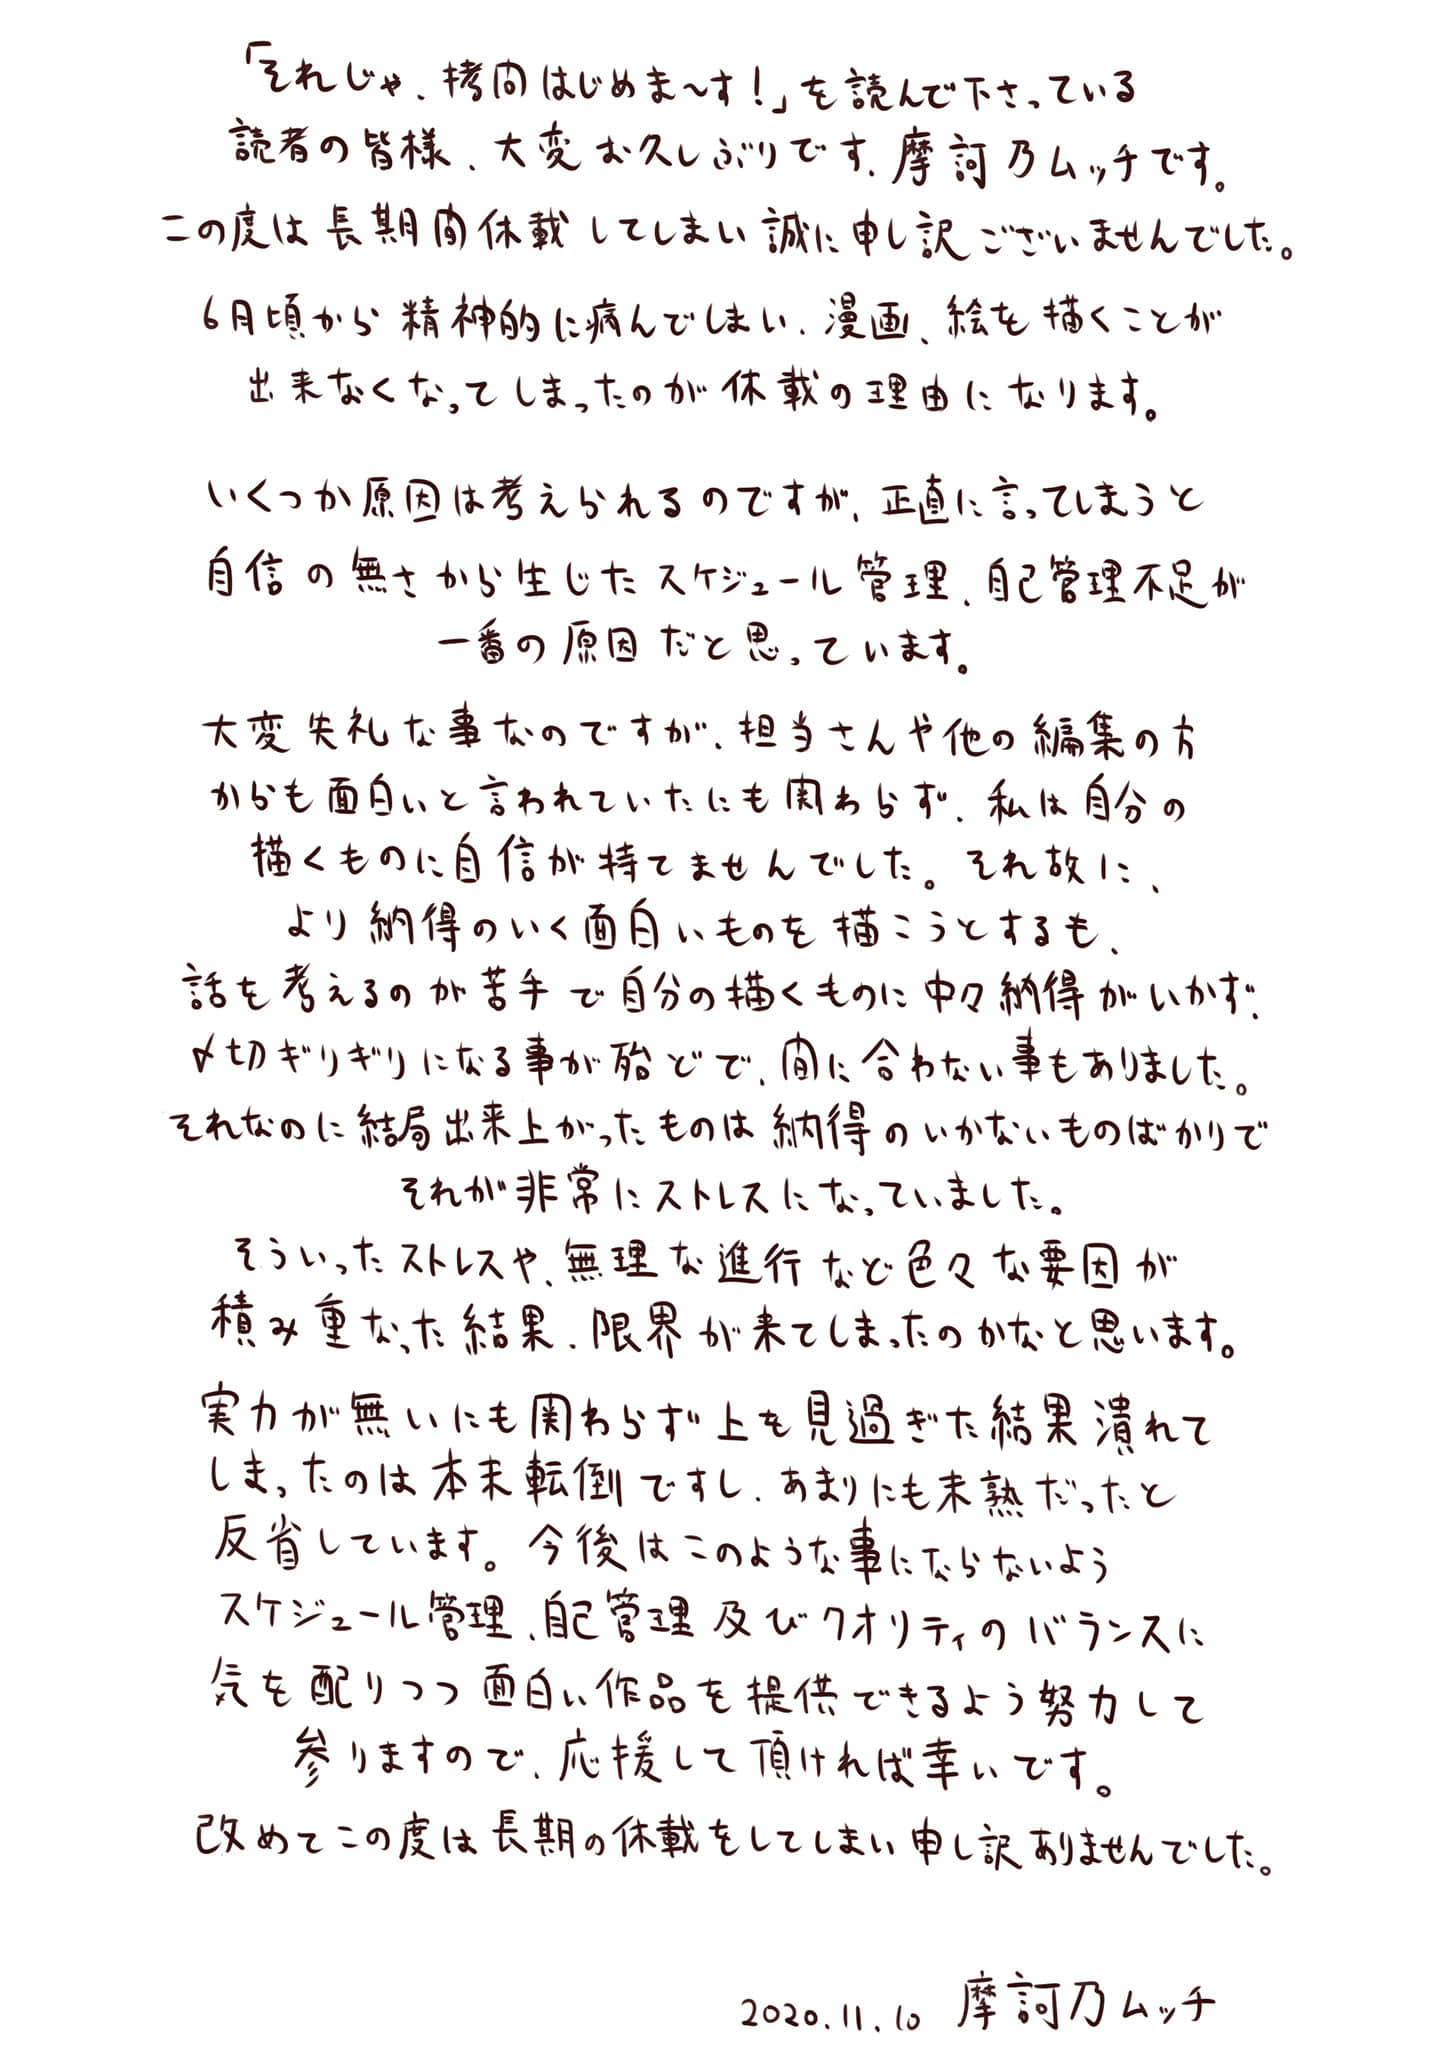 「それじゃ、拷問はじめま〜す!」を読んで下さっている
読者の皆様、大変お久しぶりです、摩訶乃ムッチです。
この度は長期間休載してしまい誠に申し訳ございませんでした。
6月頃から精神的に病んでしまい、漫画、絵を描くことが
出来なくなってしまったのが休載の理由になります。
いくつか原因は考えられるのですが、正直に言ってしまうと
自信の無さから生じたスケジュール管理、自己管理不足が
一番の原因だと思っています。
大変失礼な事なのですが、担当さんや他の編集の方
からも面白いと言われていたにも関わらず、私は自分の
描くものに自信が持てませんでした。それ故に、
より納得のいく面白いものを描こうとするも、
話を考えるのが苦手で自分の描くものに中々納得がいかず、
〆切ギリギリになる事が殆どで、間に合わない事もありました。
それなのに結局出来上がったものは納得のいかないものばかりで
それが非常にストレスになっていました。
そういったストレスや、無理な進行など色々な要因が
積み重なった結果、限界が来てしまったのかなと思います。
実力が無いにも関わらず上を見過ぎた結果潰れて
しまったのは本末転倒ですし、あまりにも未熟だったと
反省しています。今後はこのような事にならないよう
スケジュール管理、自己管理及びクオリティのバランスに
気を配りつつ面白い作品を提供できるよう努力して
参りますので、応援して頂ければ幸いです。
改めてこの度は長期の休載をしてしまい申し訳ありませんでした。
2020.11.10 摩訶乃ムッチ